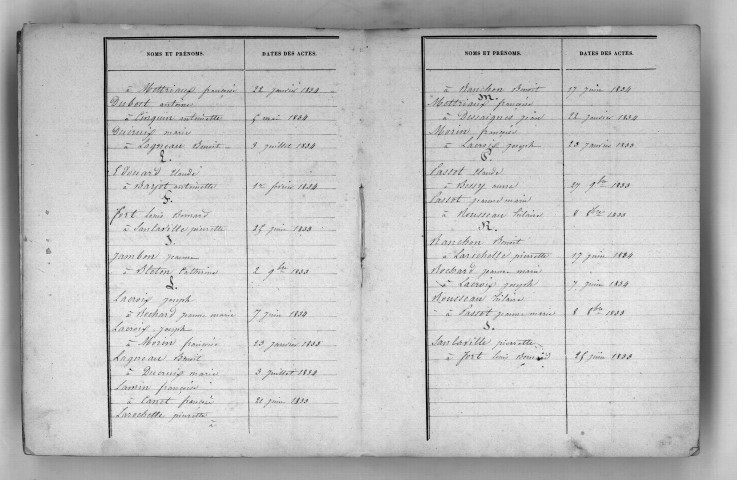 NOMS ET PRÉNOMS. DATES DES ACTES.
à Mottréaux françois 22 janvier 1834
Dubost antoine
à Cinquin antoinette 6 mai 1834
Ducruix marie
à Lagneau Benoit 3 juillet 1834
E.
Edouard Claude
à Bajot antoinette 12 février 1834
F.
Fort Louis Bernard
à Sanlaville pierrette 25 juin 1833
J.
Jambon jeanne
à Bleton Catherine 2 9bre 1833
L.
Lacroix joseph
à Rochard jeanne marie 7 juin 1834
Lacroix joseph
à Morin françoise 23 janvier 1833
Lagneau Benoit
à Ducruix marie 3 juillet 1834
Lamin françoise
à Canet françois 21 juin 1833
Larochelle pierrette
à
NOMS ET PRÉNOMS. DATES DES ACTES.
à Ranchon Benoit 17 juin 1834
M.
Mottréaux françois
à Dessaignes jeanne 22 janvier 1834
Morin françoise
à Lacroix joseph 23 janvier 1833
P.
Passot Claude
à Bessy anne 27 9bre 1833
Passot jeanne marie
à Rousseau hilaire 8 8bre 1833
R.
Ranchon Benoit
à Larochelle pierrette 17 juin 1834
Rochard jeanne marie
à Lacroix joseph 7 juin 1834
Rousseau hilaire
à Passot jeanne marie 8 8bre 1833
S.
Sanlaville pierrette
à Fort Louis Bernard 25 juin 1833